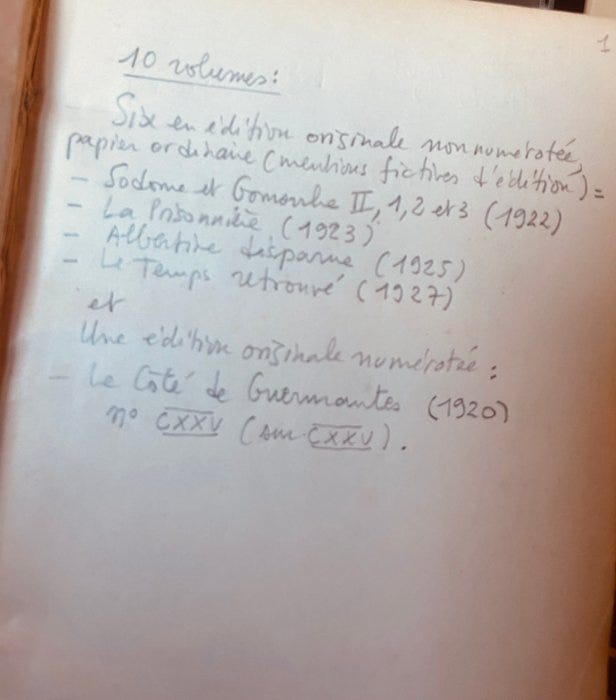 1
10 volumes :
Six en édition originale non numérotée,
papier ordinaire (mentions fictives d'édition) =
- Sodome et Gomorrhe II, 1, 2 et 3 (1922)
- La Prisonnière (1923)
- Albertine disparue (1925)
- Le Temps retrouvé (1927)
et
Une édition originale numérotée :
- Le Côté de Guermantes (1920)
n° CXXV (sur CXXV).